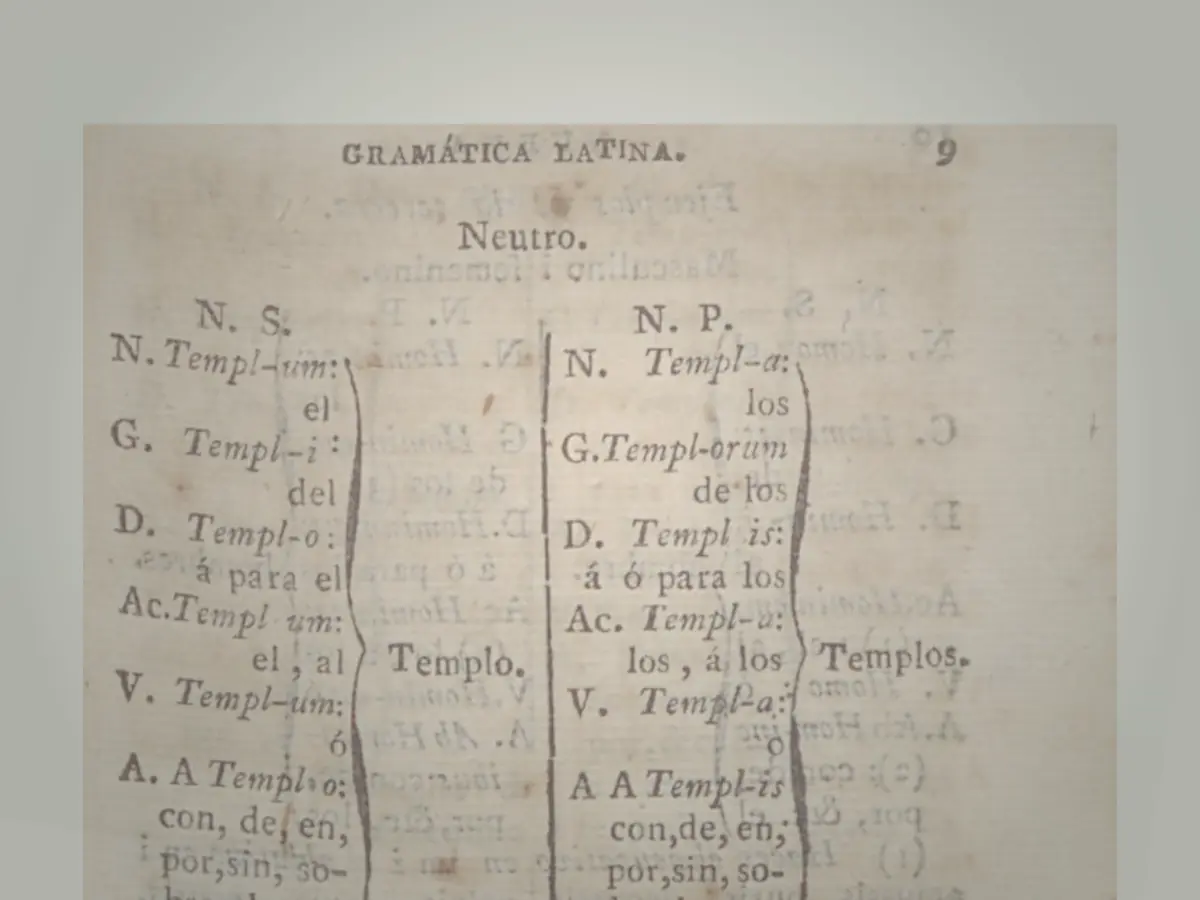 GRAMÁTICA LATINA. 9
Neutro.
N. S.
N. Templ-um:
el
G. Templ-i:
del
D. Templ-o:
á para el
Ac. Templ um:
el, al Templo.
V. Templ-um:
ó
A. A Templ-o:
con, de, en,
por, sin, so-
N. P.
N. Templ-a:
los
G. Templ-orum
de los
D. Templ is:
á ó para los
Ac. Templ-a:
los, á los Templos.
V. Templ-a:
o
A A Templ-is
con, de, en,
por, sin, so-